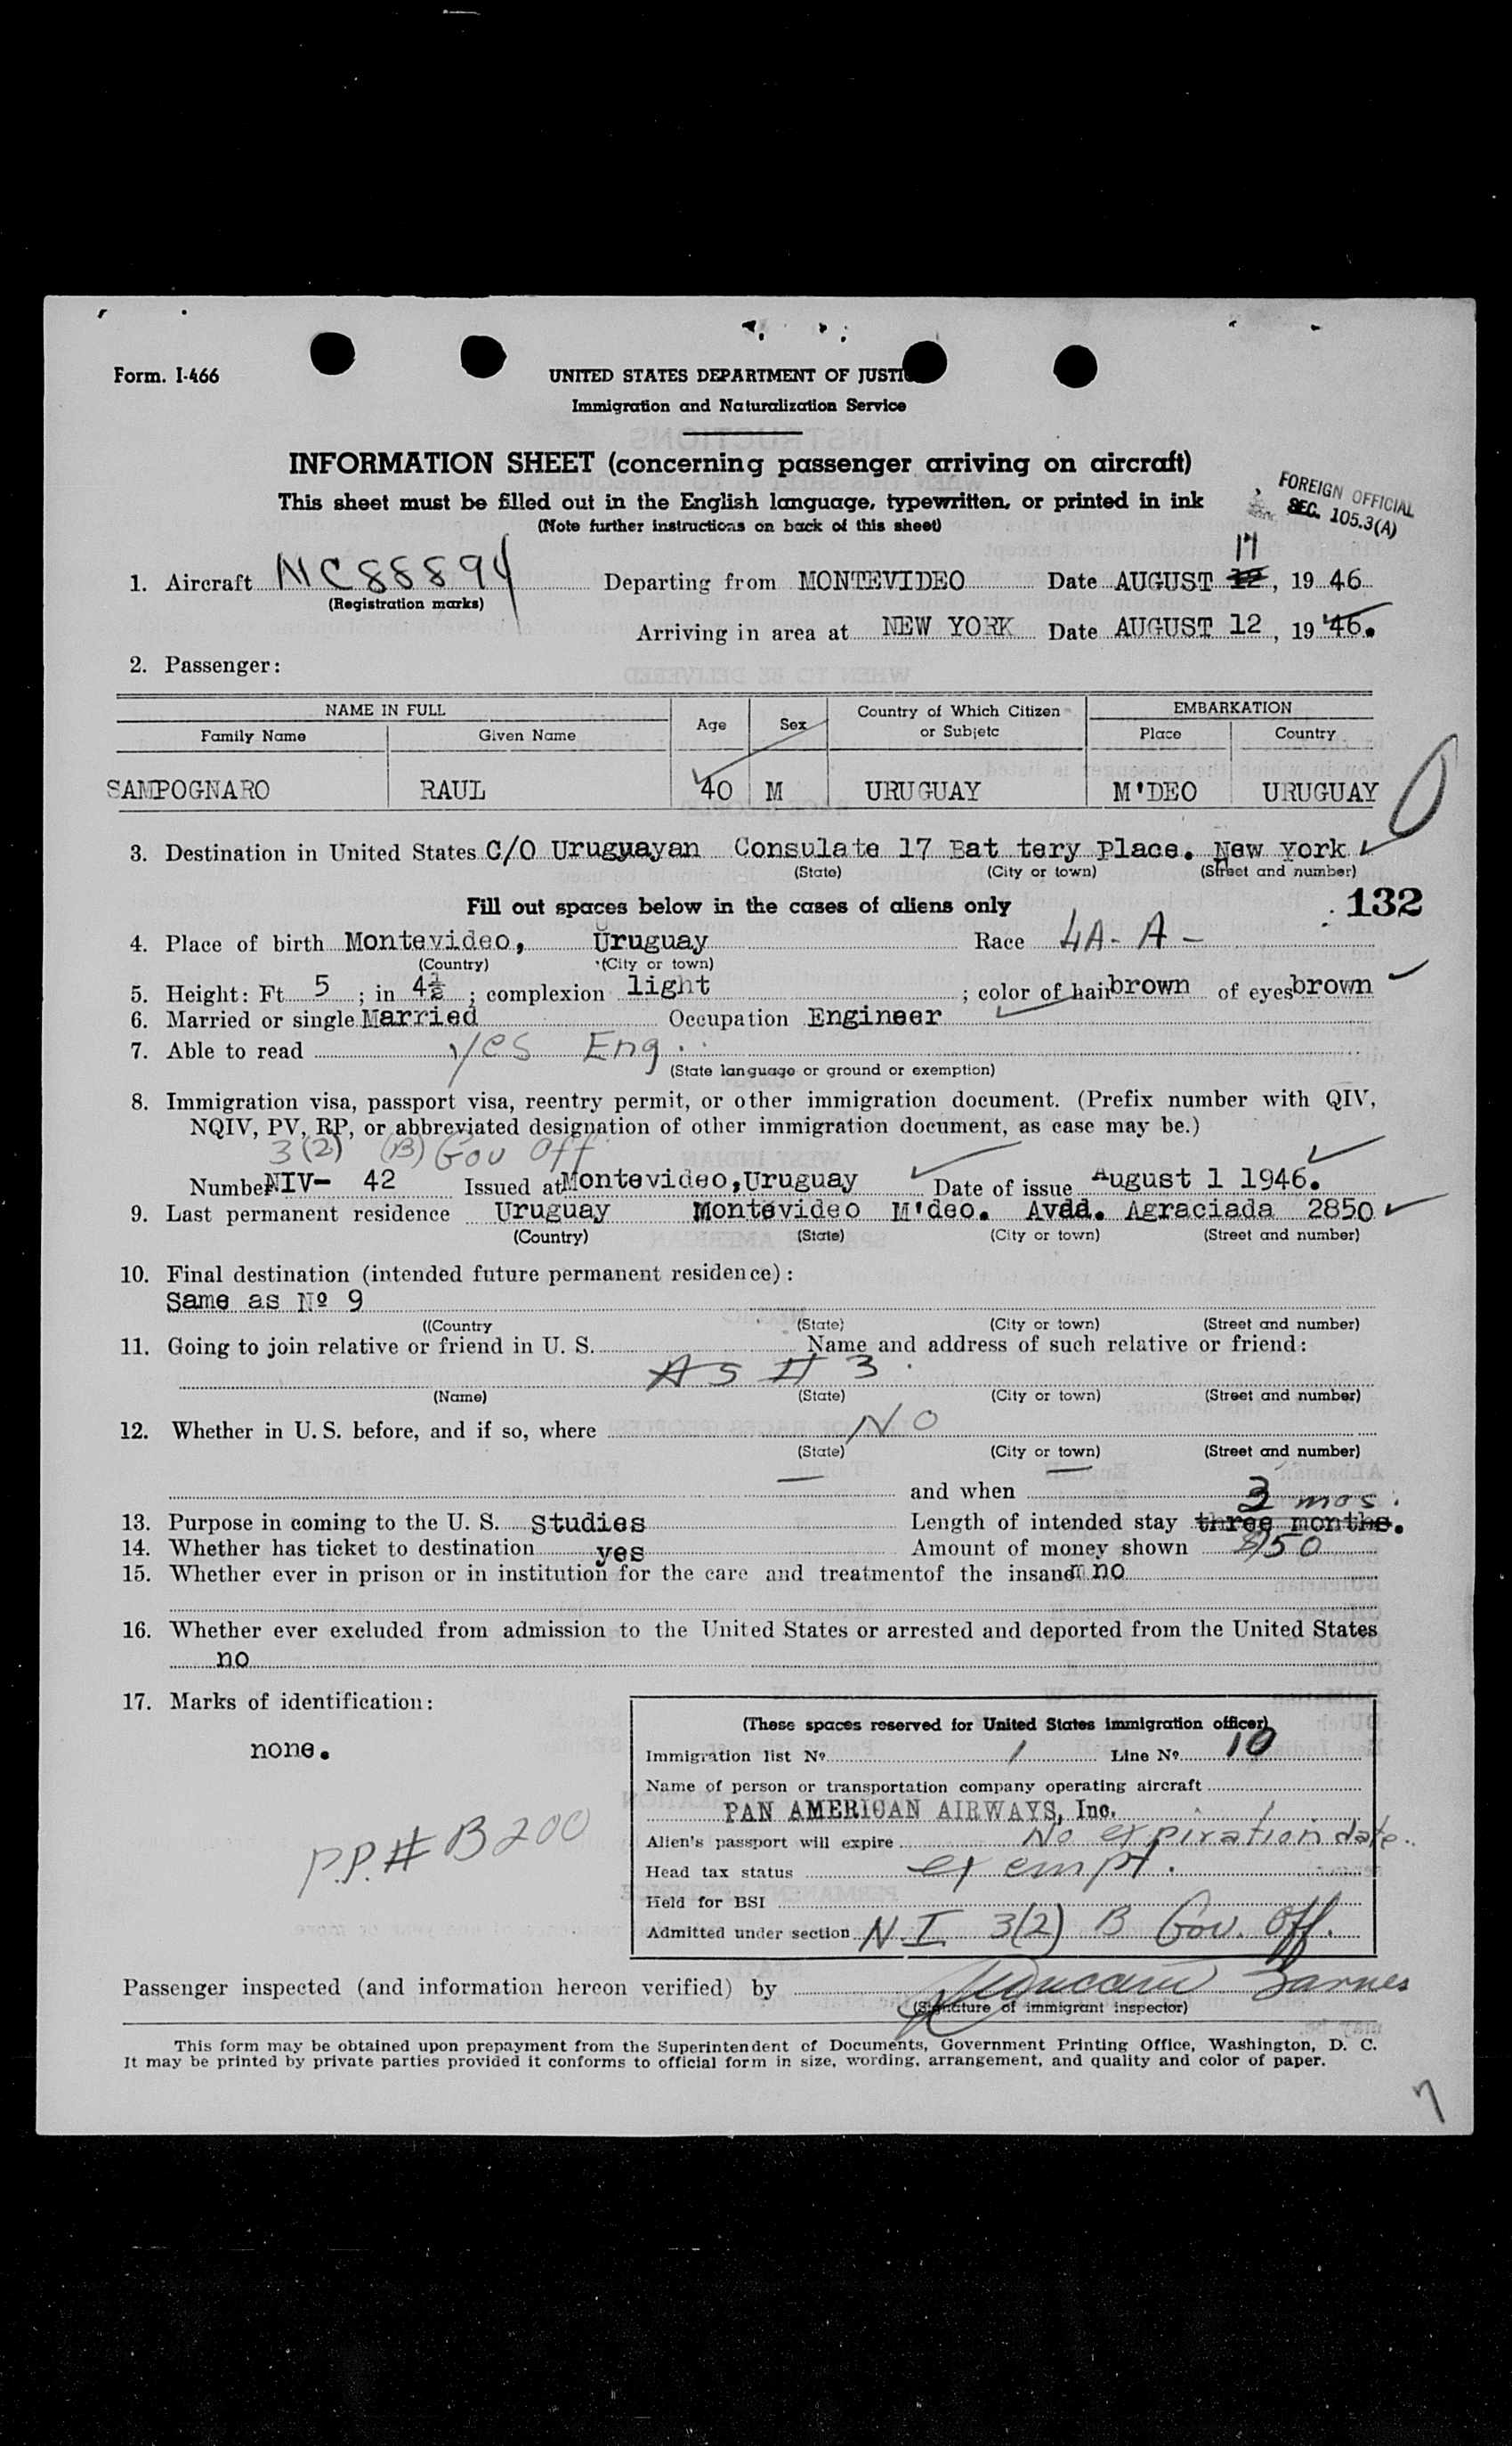 Form. I-466
UNITED STATES DEPARTMENT OF JUSTI
Immigration and Naturalization Service
INFORMATION SHEET (concerning passenger arriving on aircraft)
This sheet must be filled out in the English language, typewritten, or printed in ink
(Note further instructions on back of this sheet)
FOREIGN OFFICIAL
SEC. 105.3(A)
11
1. Aircraft NC88894 Departing from MONTEVIDEO Date AUGUST 12, 19 46
(Registration marks)
Arriving in area at NEW YORK Date AUGUST 12, 19 46.
2. Passenger:
NAME IN FULL Age Sex Country of Which Citizen or Subjetc EMBARKATION
Family Name Given Name Place Country
SAMPOGNARO RAUL 40 M URUGUAY M'DEO URUGUAY
3. Destination in United States C/O Uruguayan Consulate 17 Bat tery Place. New York
(State) (City or town) (Street and number)
Fill out spaces below in the cases of aliens only 132
4. Place of birth Montevideo, Uruguay Race
(Country) (City or town)
5. Height: Ft 5 ; in 4½ ; complexion light ; color of hair brown of eyes brown
6. Married or single Married Occupation Engineer
7. Able to read yes Eng.
(State language or ground or exemption)
8. Immigration visa, passport visa, reentry permit, or other immigration document. (Prefix number with QIV,
NQIV, PV, RP, or abbreviated designation of other immigration document, as case may be.)
3(2) (B) Gov Off
Number NIV- 42 Issued at Montevideo,Uruguay Date of issue August 1 1946.
9. Last permanent residence Uruguay Montevideo M'deo. Avda. Agraciada 2850
(Country) (State) (City or town) (Street and number)
10. Final destination (intended future permanent residence):
Same as Nº 9
((Country (State) (City or town) (Street and number)
11. Going to join relative or friend in U. S. Name and address of such relative or friend:
AS # 3
(Name) (State) (City or town) (Street and number)
12. Whether in U. S. before, and if so, where NO
(State) (City or town) (Street and number)
and when
3 mos.
13. Purpose in coming to the U. S. Studies Length of intended stay three months.
14. Whether has ticket to destination yes Amount of money shown $150
15. Whether ever in prison or in institution for the care and treatmentof the insane no
16. Whether ever excluded from admission to the United States or arrested and deported from the United States
no
17. Marks of identification:
none.
P.P.# B200
(These spaces reserved for United States immigration officer)
Immigration list Nº 1 Line Nº 10
Name of person or transportation company operating aircraft
PAN AMERICAN AIRWAYS, Inc.
Alien's passport will expire No expiration date.
Head tax status exempt.
Held for BSI
Admitted under section N.I. 3(2) B Gov. Off.
Passenger inspected (and information hereon verified) by Barnes
(Signature of immigrant inspector)
This form may be obtained upon prepayment from the Superintendent of Documents, Government Printing Office, Washington, D. C.
It may be printed by private parties provided it conforms to official form in size, wording, arrangement, and quality and color of paper.
7